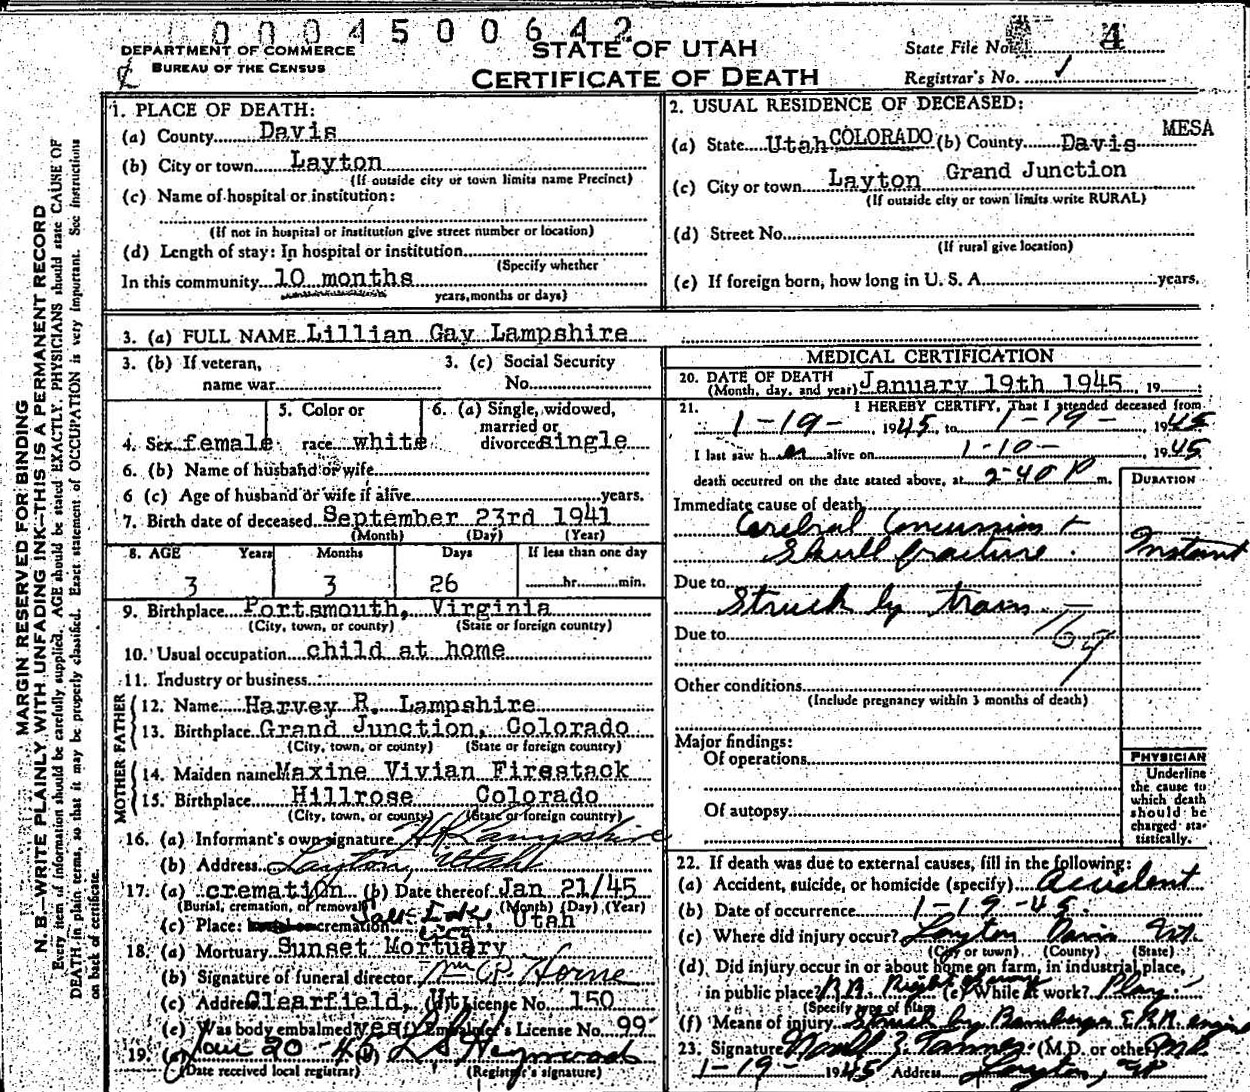 0004500642
DEPARTMENT OF COMMERCE
BUREAU OF THE CENSUS
STATE OF UTAH
CERTIFICATE OF DEATH
State File No. 4
Registrar's No.
MARGIN RESERVED FOR BINDING
N. B.—WRITE PLAINLY, WITH UNFADING INK—THIS IS A PERMANENT RECORD
Every item of information should be carefully supplied. AGE should be stated EXACTLY. PHYSICIANS should state CAUSE OF
DEATH in plain terms, so that it may be properly classified. Exact statement of OCCUPATION is very important. See instructions
on back of certificate.
1. PLACE OF DEATH:
(a) County Davis
(b) City or town Layton
(If outside city or town limits name Precinct)
(c) Name of hospital or institution:
(If not in hospital or institution give street number or location)
(d) Length of stay: In hospital or institution
(Specify whether
In this community 10 months
years, months or days)
2. USUAL RESIDENCE OF DECEASED:
(a) State Utah COLORADO (b) County Davis MESA
(c) City or town Layton Grand Junction
(If outside city or town limits write RURAL)
(d) Street No.
(If rural give location)
(e) If foreign born, how long in U. S. A. years.
3. (a) FULL NAME Lillian Gay Lampshire
3. (b) If veteran, name war
3. (c) Social Security No.
4. Sex female
5. Color or race white
6. (a) Single, widowed, married or divorced single
6. (b) Name of husband or wife
6 (c) Age of husband or wife if alive years.
7. Birth date of deceased September 23rd 1941
(Month) (Day) (Year)
8. AGE Years Months Days If less than one day
3 3 26 hr. min.
9. Birthplace Portsmouth, Virginia
(City, town, or county) (State or foreign country)
10. Usual occupation child at home
11. Industry or business
FATHER
12. Name Harvey R. Lampshire
13. Birthplace Grand Junction, Colorado
(City, town, or county) (State or foreign country)
MOTHER
14. Maiden name Maxine Vivian Firestack
15. Birthplace Hillrose Colorado
(City, town, or county) (State or foreign country)
16. (a) Informant's own signature H R Lampshire
(b) Address Layton, Utah
17. (a) cremation (b) Date thereof Jan 21/45
(Burial, cremation, or removal) (Month) (Day) (Year)
(c) Place: cremation Salt Lake City, Utah
18. (a) Mortuary Sunset Mortuary
(b) Signature of funeral director Horne
(c) Address Clearfield, Ut License No. 150
(e) Was body embalmed yes Embalmer's License No. 99
19. (a) Jan 20-45 (b) L S Heywood
(Date received local registrar) (Registrar's signature)
MEDICAL CERTIFICATION
20. DATE OF DEATH
(Month, day, and year) January 19th 1945, 19
21. I HEREBY CERTIFY, That I attended deceased from
1-19-, 1945, to 1-19-, 1945
I last saw her alive on 1-10-, 1945
death occurred on the date stated above, at 2-40 P m.
DURATION
Immediate cause of death
Cerebral Concussion +
Skull fracture. Instant
Due to
Struck by train
Due to 169
Other conditions
(Include pregnancy within 3 months of death)
Major findings:
Of operations
Of autopsy
PHYSICIAN
Underline
the cause to
which death
should be
charged sta-
tistically.
22. If death was due to external causes, fill in the following:
(a) Accident, suicide, or homicide (specify) Accident
(b) Date of occurrence 1-19-45.
(c) Where did injury occur? Layton Davis Ut.
(City or town) (County) (State)
(d) Did injury occur in or about home on farm, in industrial place,
in public place? R.R. Right of way (e) While at work? Play
(Specify type of place)
(f) Means of injury Struck by Bamberger E.R.R. engine
23. Signature Noall Z. Tanner (M.D. or other) M.D.
1-19- 1945 Address Layton, Ut